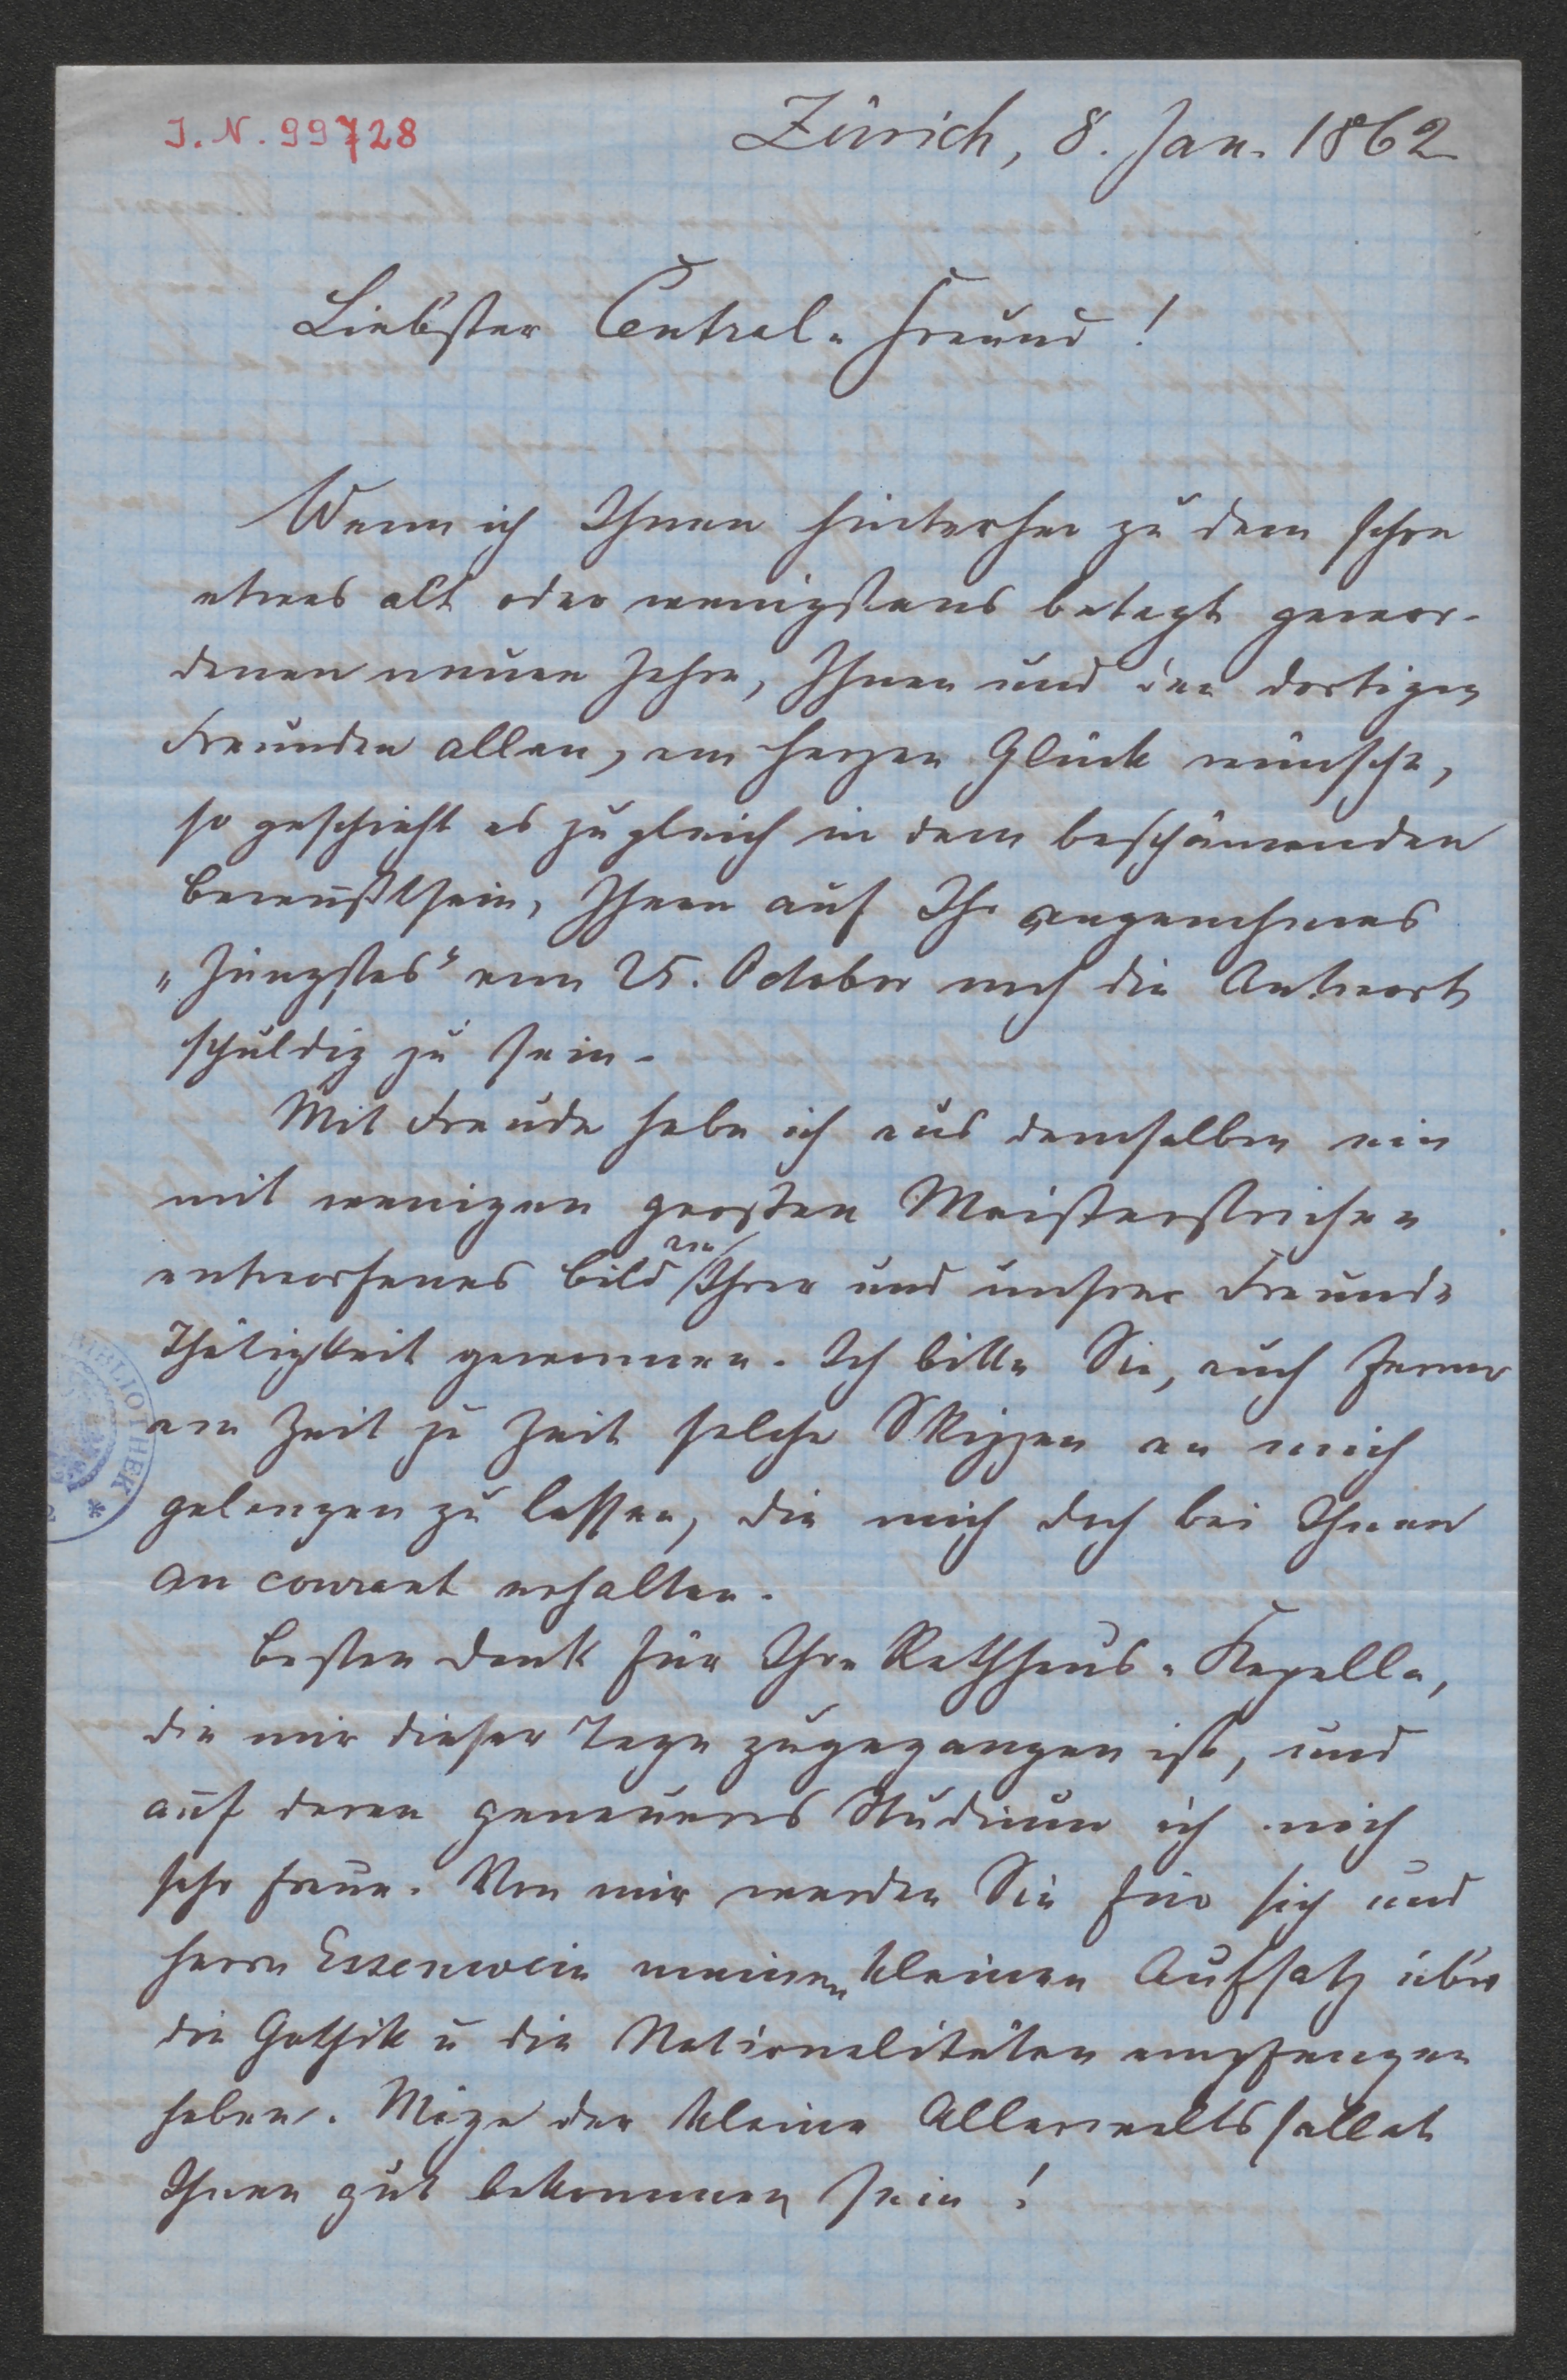 J. N. 99728
Zürich, 8. Jan. 1862
Liebster Central-Freund!
Wenn ich Ihnen hinterher zu dem schon
etwas alt oder wenigstens betagt gewor-
denen neuen Jahre, Ihnen und den dortigen
Freunden allen, von Herzen Glück wünsche,
so geschieht es zugleich in dem beschämenden
Bewußtsein, Ihnen auf Ihr angenehmes
„Jüngstes" vom 25. October noch die Antwort
schuldig zu sein.
Mit Freude habe ich aus demselben ein
mit wenigen großen Meisterstrichen
entworfenes Bild von Ihrer und unsrer Freunde
Thätigkeit gewonnen. Ich bitte Sie, auch ferner
von Zeit zu Zeit solche Skizzen an mich
gelangen zu lassen, die mich doch bei Ihnen
au courant erhalten.
Besten Dank für Ihre Rathhaus-Kapelle,
die mir dieser Tage zugegangen ist, und
auf deren genaueres Studium ich mich
sehr freue. Von mir werden Sie für sich und
Herrn Essenwein meinen kleinen Aufsatz über
die Gothik u die Nationalitäten empfangen
haben. Möge der kleine Allerweltssallat
Ihnen gut bekommen sein!
BIBLIOTHEK *